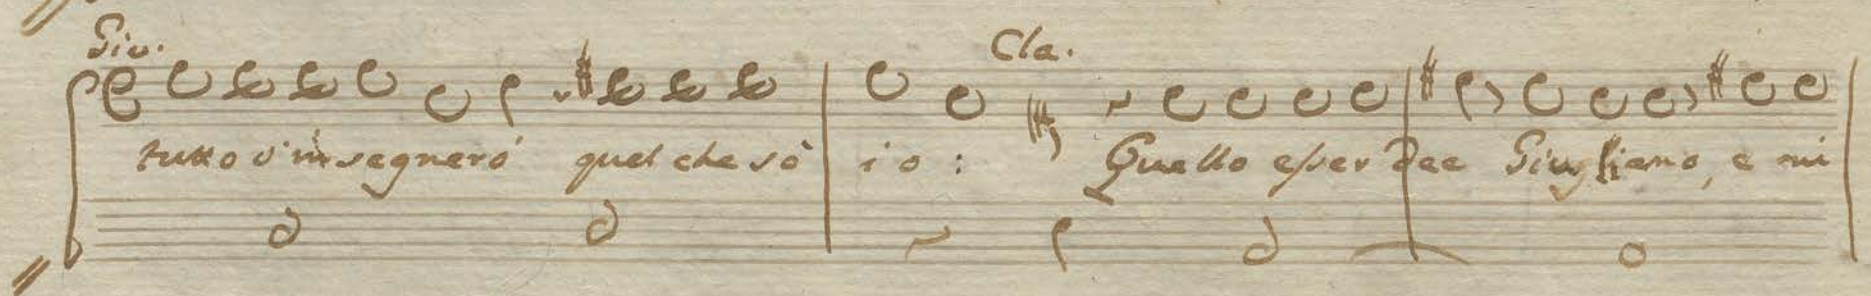 Giu. Cla.
tutto v'insegneró quel che sò io : Quello esser dee Giugliano, e mi